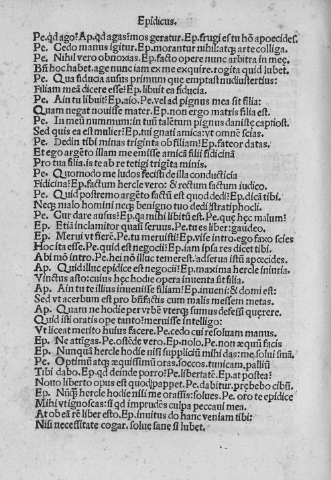 Epidicus.
Pe. qd ago? Ap. qd agas? mos geratur. Ep. frugi es tu hō apoecides.
Pe. Cedo manus igitur. Ep. morantur nihil: atq; arte colliga.
Pe. Nihil vero obnoxias. Ep. facto opere nunc arbitra in meq;
Bñ hoc habet. age nunciam ex me exquire. rogita quid lubet.
Pe. Qua fiducia ausus primum que emptast nudiustertius:
Filiam meā dicere esse? Ep. libuit ea fiducia.
Pe. Ain tu libuit? Ep. aio. Pe. vel ad pignus mea sit filia:
Quam negat nouisse mater. Ep. non ergo matris filia est.
Pe. In meū nummum: in tuū talētum pignus daniste captiost.
Sed quis ea est mulier? Ep. tui gnati amica: vt omnē scias.
Pe. Dedin tibi minas triginta ob filiam? Ep. fateor datas.
Et ego argēto illam me emisse amicā filii fidicinā
Pro tua filia. is te ab re tetigi trigita minis.
Pe. Quomodo me ludos fecisti de illa conducticia
Fidicina? Ep. factum hercle vero: & rectum factum iudico.
Pe. Quid postremo argēto factū est quod dedi? Ep. dicā tibi.
Neq; malo homini neq; benigno tuo dedi stratiphocli.
Pe. Cur dare ausus? Ep. qa mihi libitū est. Pe. que hęc malum?
Ep. Etiā inclamitor quasi seruus. Pe. tu es liber: gaudeo.
Ep. Merui vt fierē. Pe. tu meruisti? Ep. vise intro. ego faxo scies
Hoc ita esse. Pe. quid est negocii? Ep. iam ipsa res dicet tibi.
Abi mō intro. Pe. hei nō illuc temerest. adserua istū apoecides.
Ap. Quid illuc epidice est negocii? Ep. maxima hercle iniuria.
Vinctus asto: cuius hęc hodie opera inuenta sit filia.
Ap. Ain tu te illius inuenisse filiam? Ep. inueni: & domi est:
Sed vt acerbum est pro bñfactis cum malis messem metas.
Ap. Quam ne hodie per vrbē vterq; sumus defessi querere.
Quid isti oratis ope tanto? meruisse intelligo:
Vt liceat merito huius facere. Pe. cedo cui resoluam manus.
Ep. Ne attigas. Pe. ostēde vero. Ep. nolo. Pe. non ęquū facis
Ep. Nunquā hercle hodie nisi supplicii mihi das: me solui sinā.
Pe. Optimū atq; ęquissimū oras. soccos. tunicam. palliū
Tibi dabo. Ep. qd deinde porro? Pe. libertatē. Ep. at postea?
Nouo liberto opus est quod pappet. Pe. dabitur. prębebo cibū.
Ep. Nūq̄ hercle hodie nisi me orassis: solues. Pe. oro te epidice
Mihi vt ignoscas: si qd imprudēs culpa peccaui mea.
At ob eā rē liber esto. Ep. inuitus do hanc veniam tibi:
Nisi necessitate cogar. solue sane si lubet.